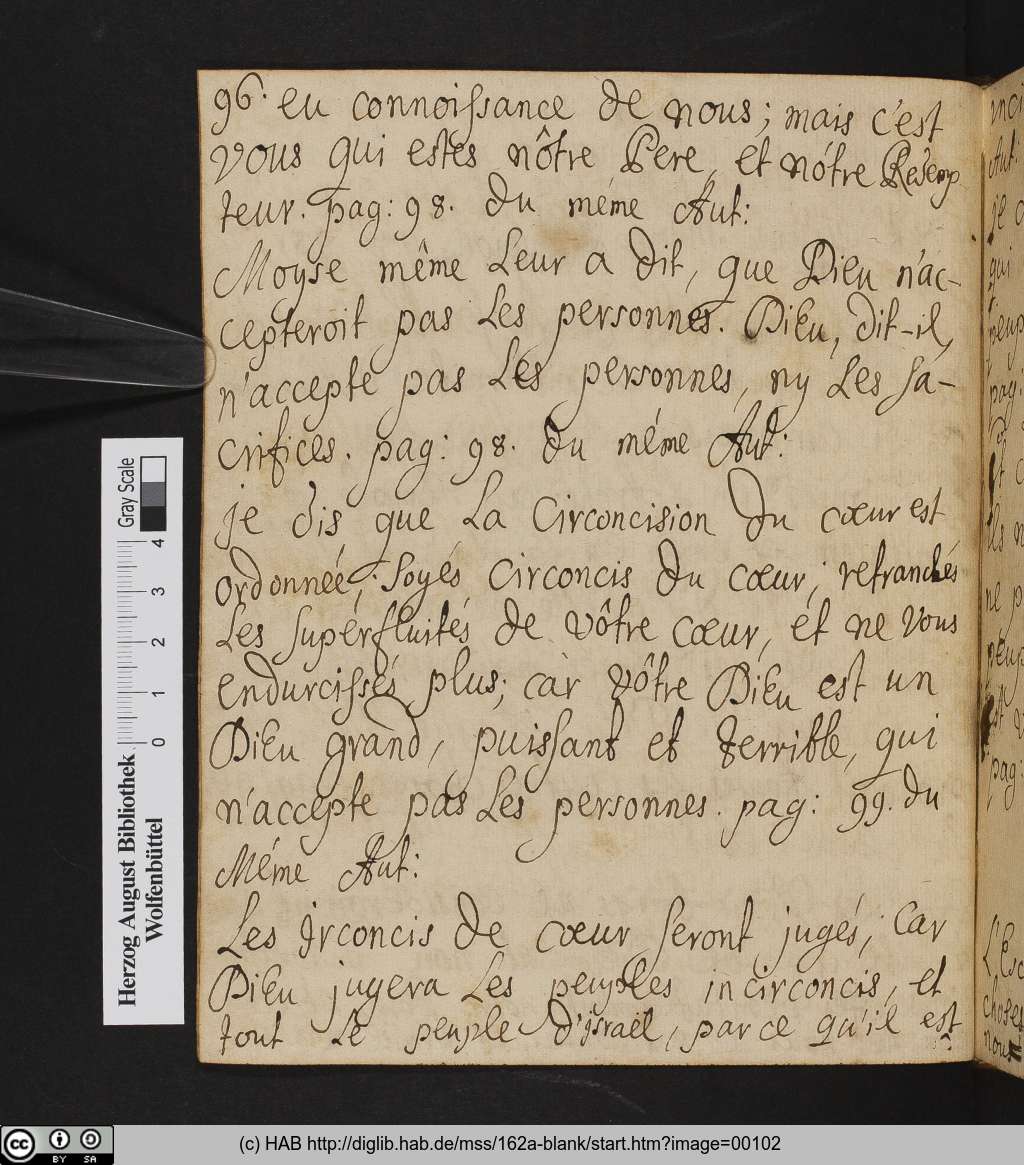 96. eu connoissance de nous; mais c'est
vous qui estes nôtre Pere, et nôtre Redemp
teur. pag: 98. du méme Aut:
Moyse même Leur a dit, que Dieu n'ac-
cepteroit pas Les personnes. Dieu, dit-il,
n'accepte pas Les personnes, ny Les sa-
crifices. pag: 98. du méme Aut:
je dis que La Circoncision du cœur est
ordonnée; soyés circoncis du cœur; retranchés
Les supérfluités de vôtre cœur, et ne vous
endurcissés plus; càr vôtre Dieu est un
Dieu grand, puissant et terrible, qui
n'accepte pas Les personnes. pag: 99. du
Méme Aut:
Les Irconcis de cœur seront jugés; Car
Dieu jugera Les peuples incirconcis, et
tout Le peuple d'israël, parce qu'il est
Gray Scale
4 3 2 1 0
Herzog August Bibliothek
Wolfenbüttel
cc BY SA
(c) HAB http://diglib.hab.de/mss/162a-blank/start.htm?image=00102